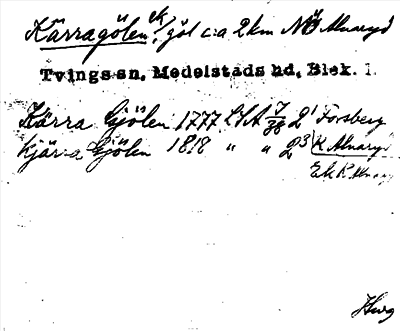 Kärragölen ek!, göl c:a 2 km NÖ Alnaryd
Tvings sn, Medelstads hd, Blek. l.
Kärra Gjölen 1777 LSA 7/38 2¹ Forsberg
Kjärra Gjölen 1818 " " 2³ K Alnaryd
Ek K Alnaryd